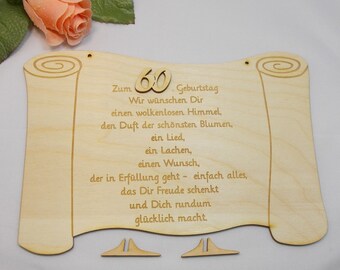 Zum 60 Geburtstag
Wir wünschen Dir
einen wolkenlosen Himmel,
den Duft der schönsten Blumen,
ein Lied,
ein Lachen,
einen Wunsch,
der in Erfüllung geht - einfach alles,
das Dir Freude schenkt
und Dich rundum
glücklich macht.